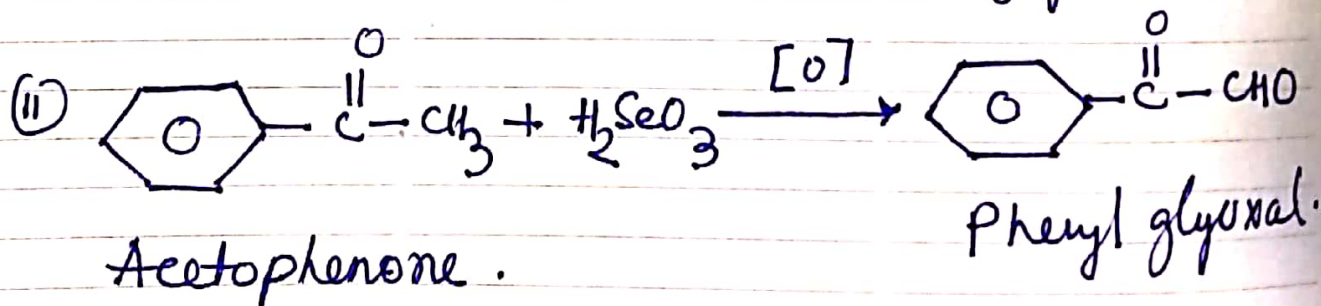 O O
(11) O -C-CH3 + H2SeO3 [O] → O -C-CHO
Acetophenone. Phenyl glyoxal.